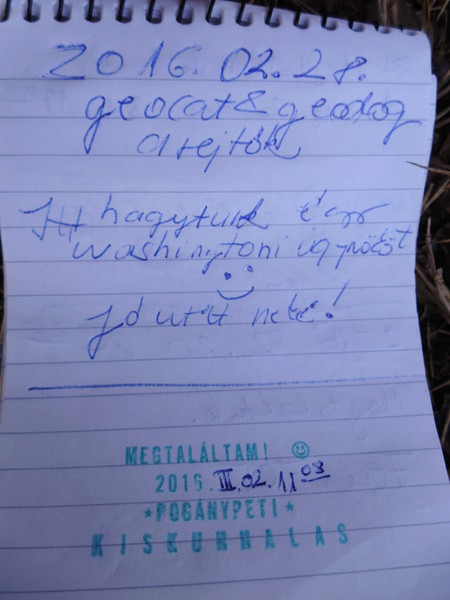 2016.02.28.
geocat & geodog
a rejtők
Itt hagytunk egy
washingtoni ügynököt
Jó utat neki!
MEGTALÁLTAM! ☺
2016. III. 02. 11 03
*POGÁNYPETI*
KISKUNHALAS